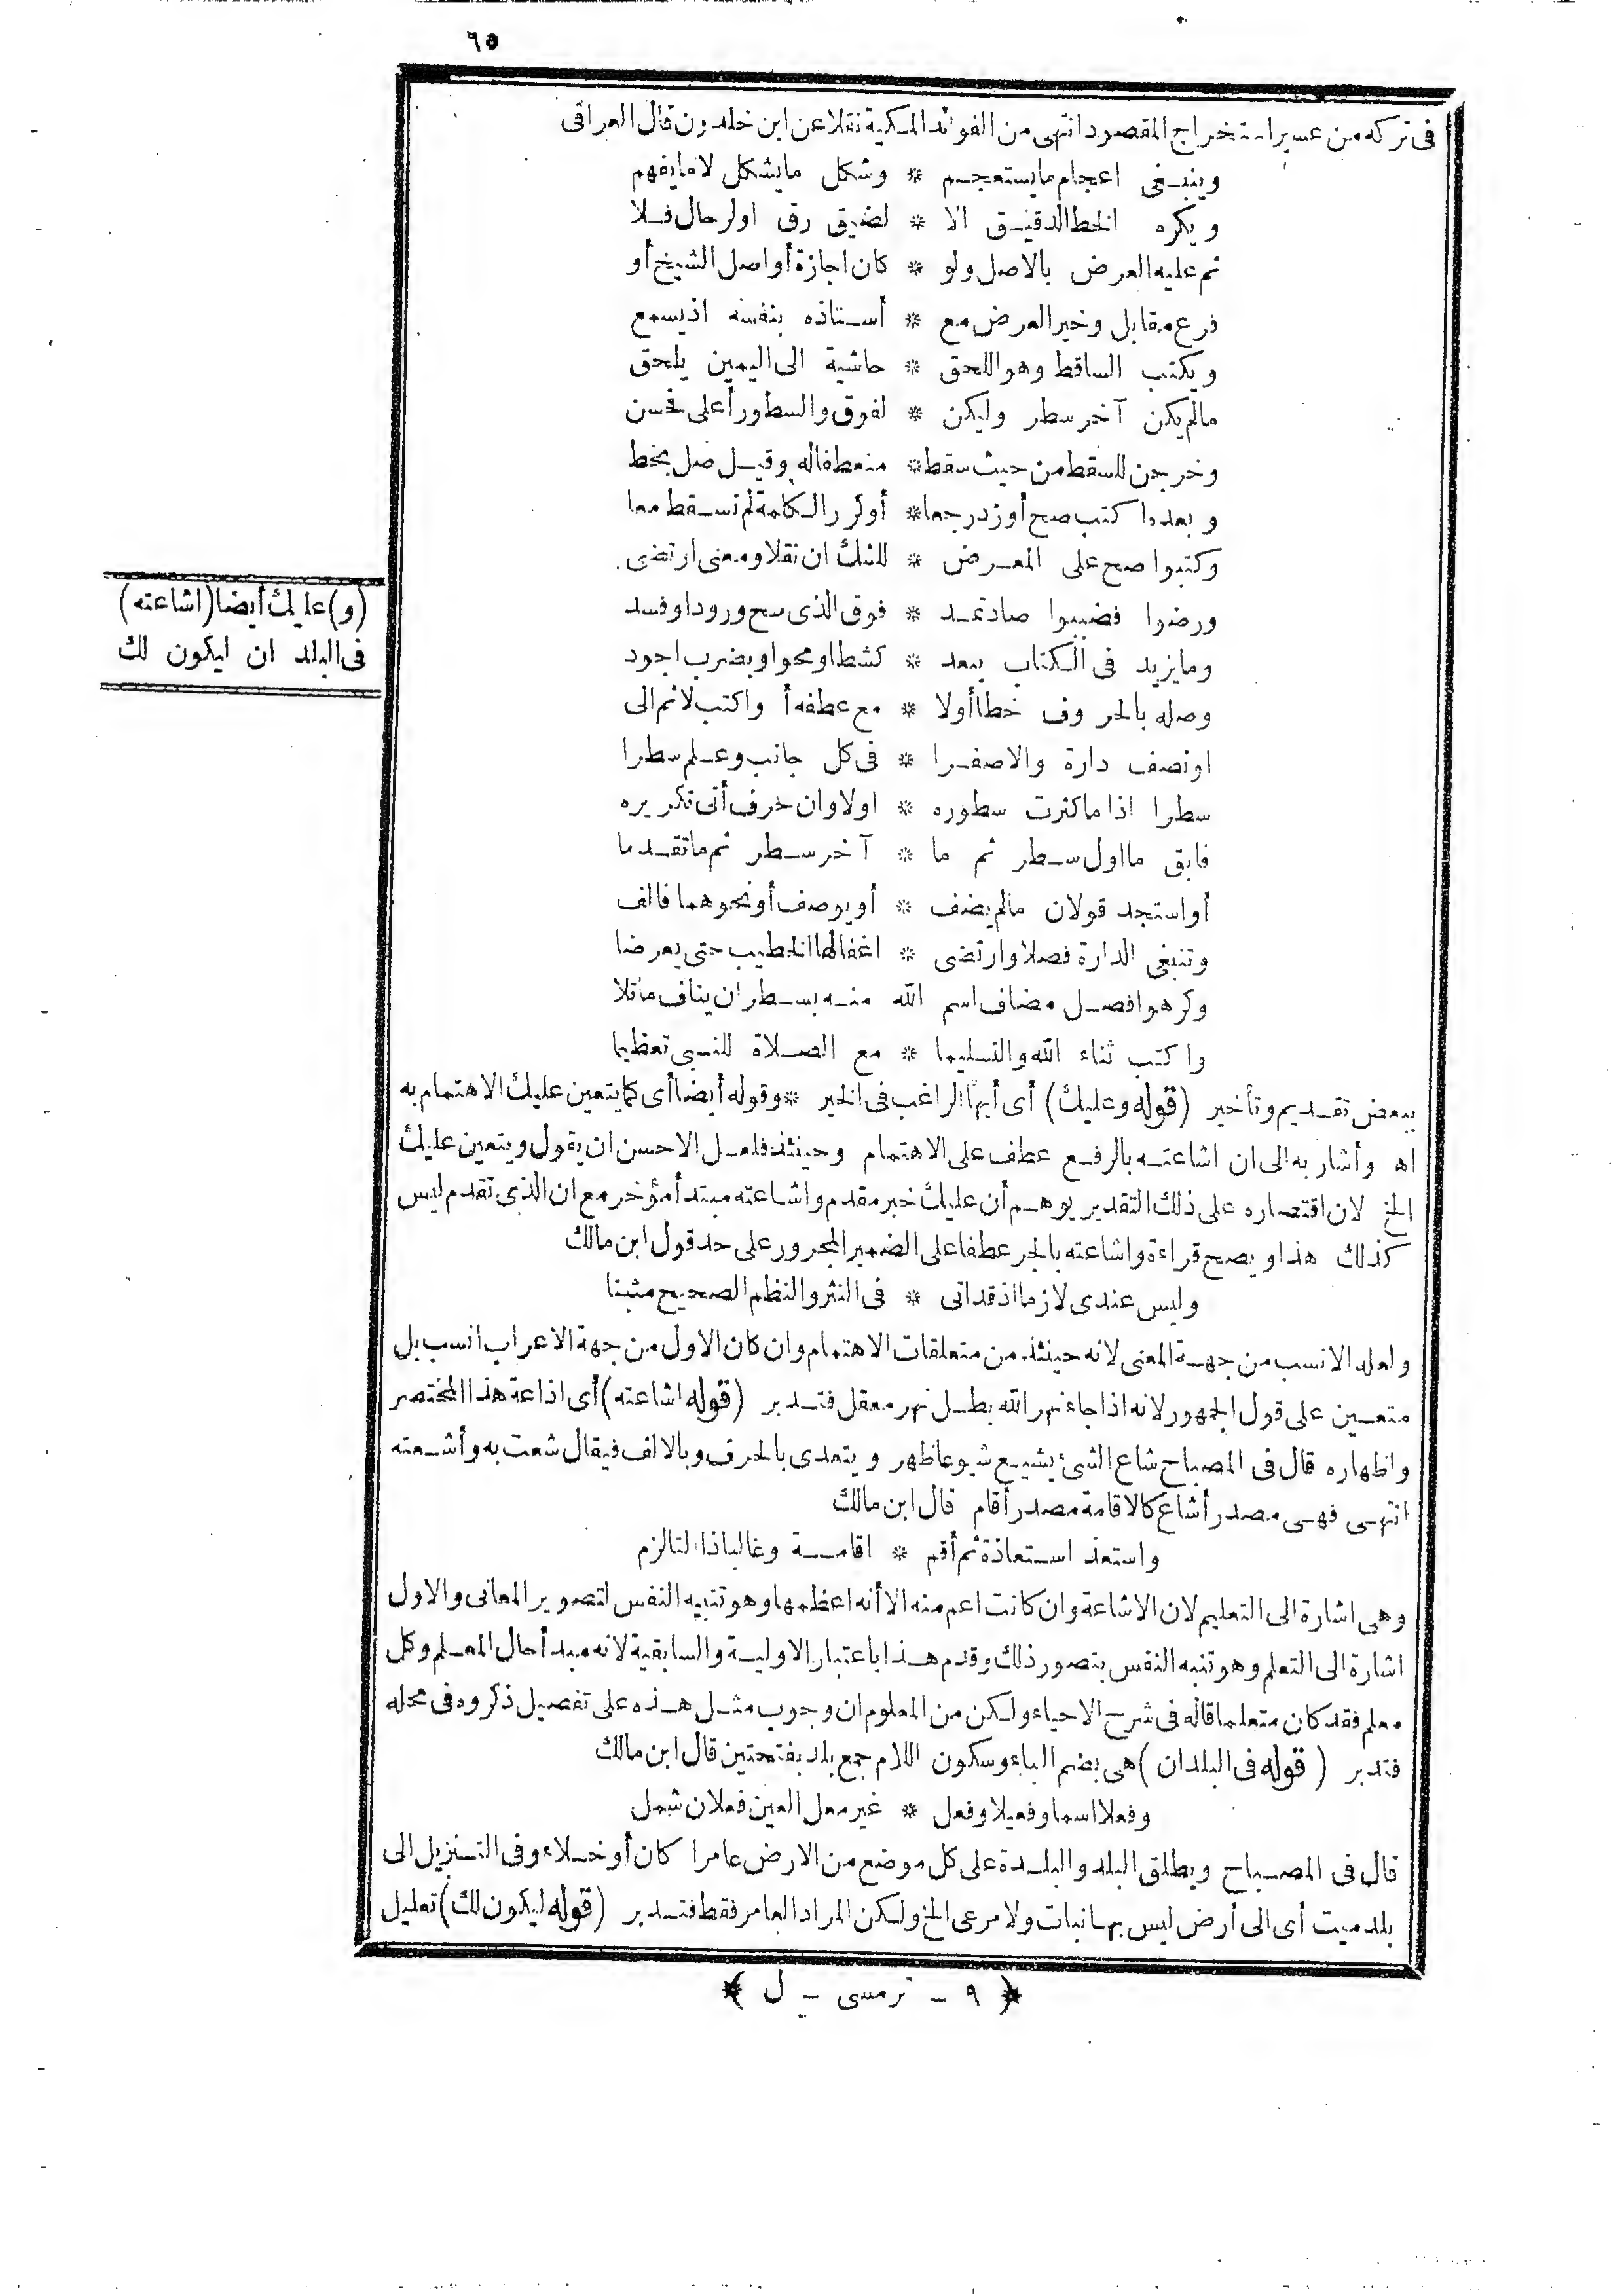 ٦٥
فى تركه من عسير استخراج المقصود انتهى من الفوائد المكية نقلا عن ابن خلدون قال العراقى
وينبغى اعجام ما يستعجم * وشكل ما يشكل لا ما يفهم
ويكره الخط الدقيق الا * لضيق رق او لرحال فلا
ثم عليه العرض بالاصل ولو * كان اجازة أو اصل الشيخ أو
فرع مقابل وخير العرض مع * أستاذه بنفسه اذ يسمع
ويكتب الساقط وهو اللحق * حاشية الى اليمين يلحق
مالم يكن آخر سطر وليكن * لفوق والسطور أعلى فحسن
وخرجن للسقط من حيث سقط * منعطفا له وقيل صل بخط
وبعده اكتب صح أو زد رجعا * أو كرر الكلمة لم تسقط معا
وكتبوا صح على المعرض * للشك ان نقلا ومعنى ارتضى
ومرضوا فضببوا صادا تمد * فوق الذى صح ورودا وفسد
وما يزيد فى الكتاب يبعد * كشطا ومحوا وبضرب اجود
وصله بالحروف خطا أولا * مع عطفه أو اكتب لا ثم الى
او نصف دارة والا صفرا * فى كل جانب وعلم سطرا
سطرا اذا ما كثرت سطوره * اولا وان حرف أتى تكريره
فابق ما اول سطر ثم ما * آخر سطر ثم ما تقدما
أو استجد قولان مالم يضف * أو يوصف أو نحوهما فالف
وتنبغى الدارة فصلا وارتضى * اغفالها الخطيب حتى يعرضا
وكرهوا فصل مضاف اسم الله منه بسطر ان يناف ما تلا
واكتب ثناء الله والتسليما * مع الصلاة للنبى تعظيما
ببعض تقديم وتأخير (قوله وعليك) أى أيها الراغب فى الخير * وقوله أيضا أى كما يتعين عليك الاهتمام به
اه وأشار به الى ان اشاعته بالرفع عطف على الاهتمام وحينئذ فلعل الاحسن ان يقول ويتعين عليك
الخ لان اقتصاره على ذلك التقدير يوهم أن عليك خبر مقدم واشاعته مبتدأ مؤخر مع ان الذى تقدم ليس
كذلك هذا ويصح قراءة واشاعته بالجر عطفا على الضمير المجرور على حد قول ابن مالك
وليس عندى لازما اذ قد اتى * فى النثر والنظم الصحيح مثبتا
ولعله الانسب من جهة المعنى لانه حينئذ من متعلقات الاهتمام وان كان الاول من جهة الاعراب انسب بل
متعين على قول الجمهور لانه اذا جاء نهر الله بطل نهر معقل فتدبر (قوله اشاعته) أى اذاعة هذا المختصر
واظهاره قال فى المصباح شاع الشئ يشيع شيوعا ظهر ويتعدى بالحرف وبالالف فيقال شعت به وأشعته
انتهى فهى مصدر أشاع كالاقامة مصدر أقام قال ابن مالك
واستعذ استعاذة ثم أقم * اقامة وغالبا ذا التا لزم
وهى اشارة الى التعليم لان الاشاعة وان كانت اعم منه الا أنه اعظمها وهو تنبيه النفس لتصوير المعانى والاول
اشارة الى التعلم وهو تنبه النفس بتصور ذلك وقدم هذا باعتبار الاولية والسابقية لانه مبدأ حال المعلم وكل
معلم فقد كان متعلما قاله فى شرح الاحياء ولكن من المعلوم ان وجوب مثل هذه على تفصيل ذكروه فى محله
فتدبر (قوله فى البلدان) هى بضم الباء وسكون اللام جمع بلد بفتحتين قال ابن مالك
وفعلا اسما وفعيلا وفعل * غير معل العين فعلان شمل
قال فى المصباح ويطلق البلد والبلدة على كل موضع من الارض عامرا كان أو خلاء وفى التنزيل الى
بلد ميت أى الى أرض ليس بها نبات ولا مرعى الخ ولكن المراد العامر فقط فتدبر (قوله ليكون لك) تعليل
(و) عليك أيضا (اشاعته)
فى البلد ان ليكون لك
﴿ ٩ - ترمسى - ل ﴾